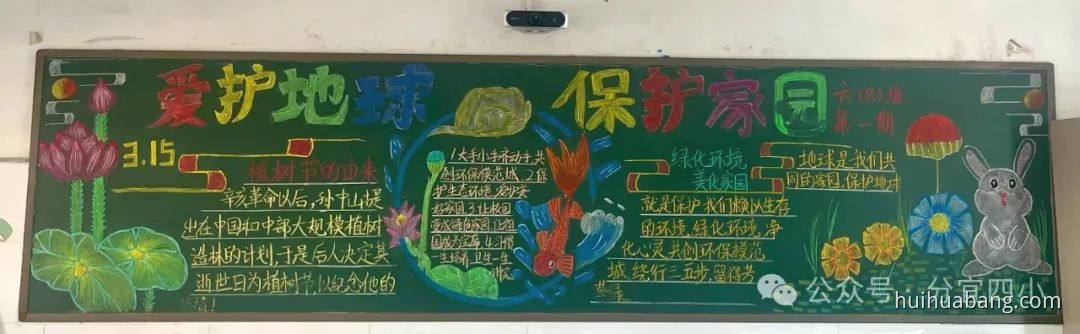 爱护地球 保护家园
六(8)班
第一期
3.15
植树节的由来
辛亥革命以后,孙中山提
出在中国和中部大规模植树
造林的计划,于是后人决定其
逝世日为植树节以纪念他的
1大手小手齐动手,共
创环保模范城,2保
护生态环境,
绿化环境
美化家园
就是保护我们赖以生存
的环境,绿化环境,净
化心灵共创环保模范
城 绕行三五步,留得芳
草绿
地球是我们共
同的家园,保护地球
公众号·分宜四小
huihuabang.com